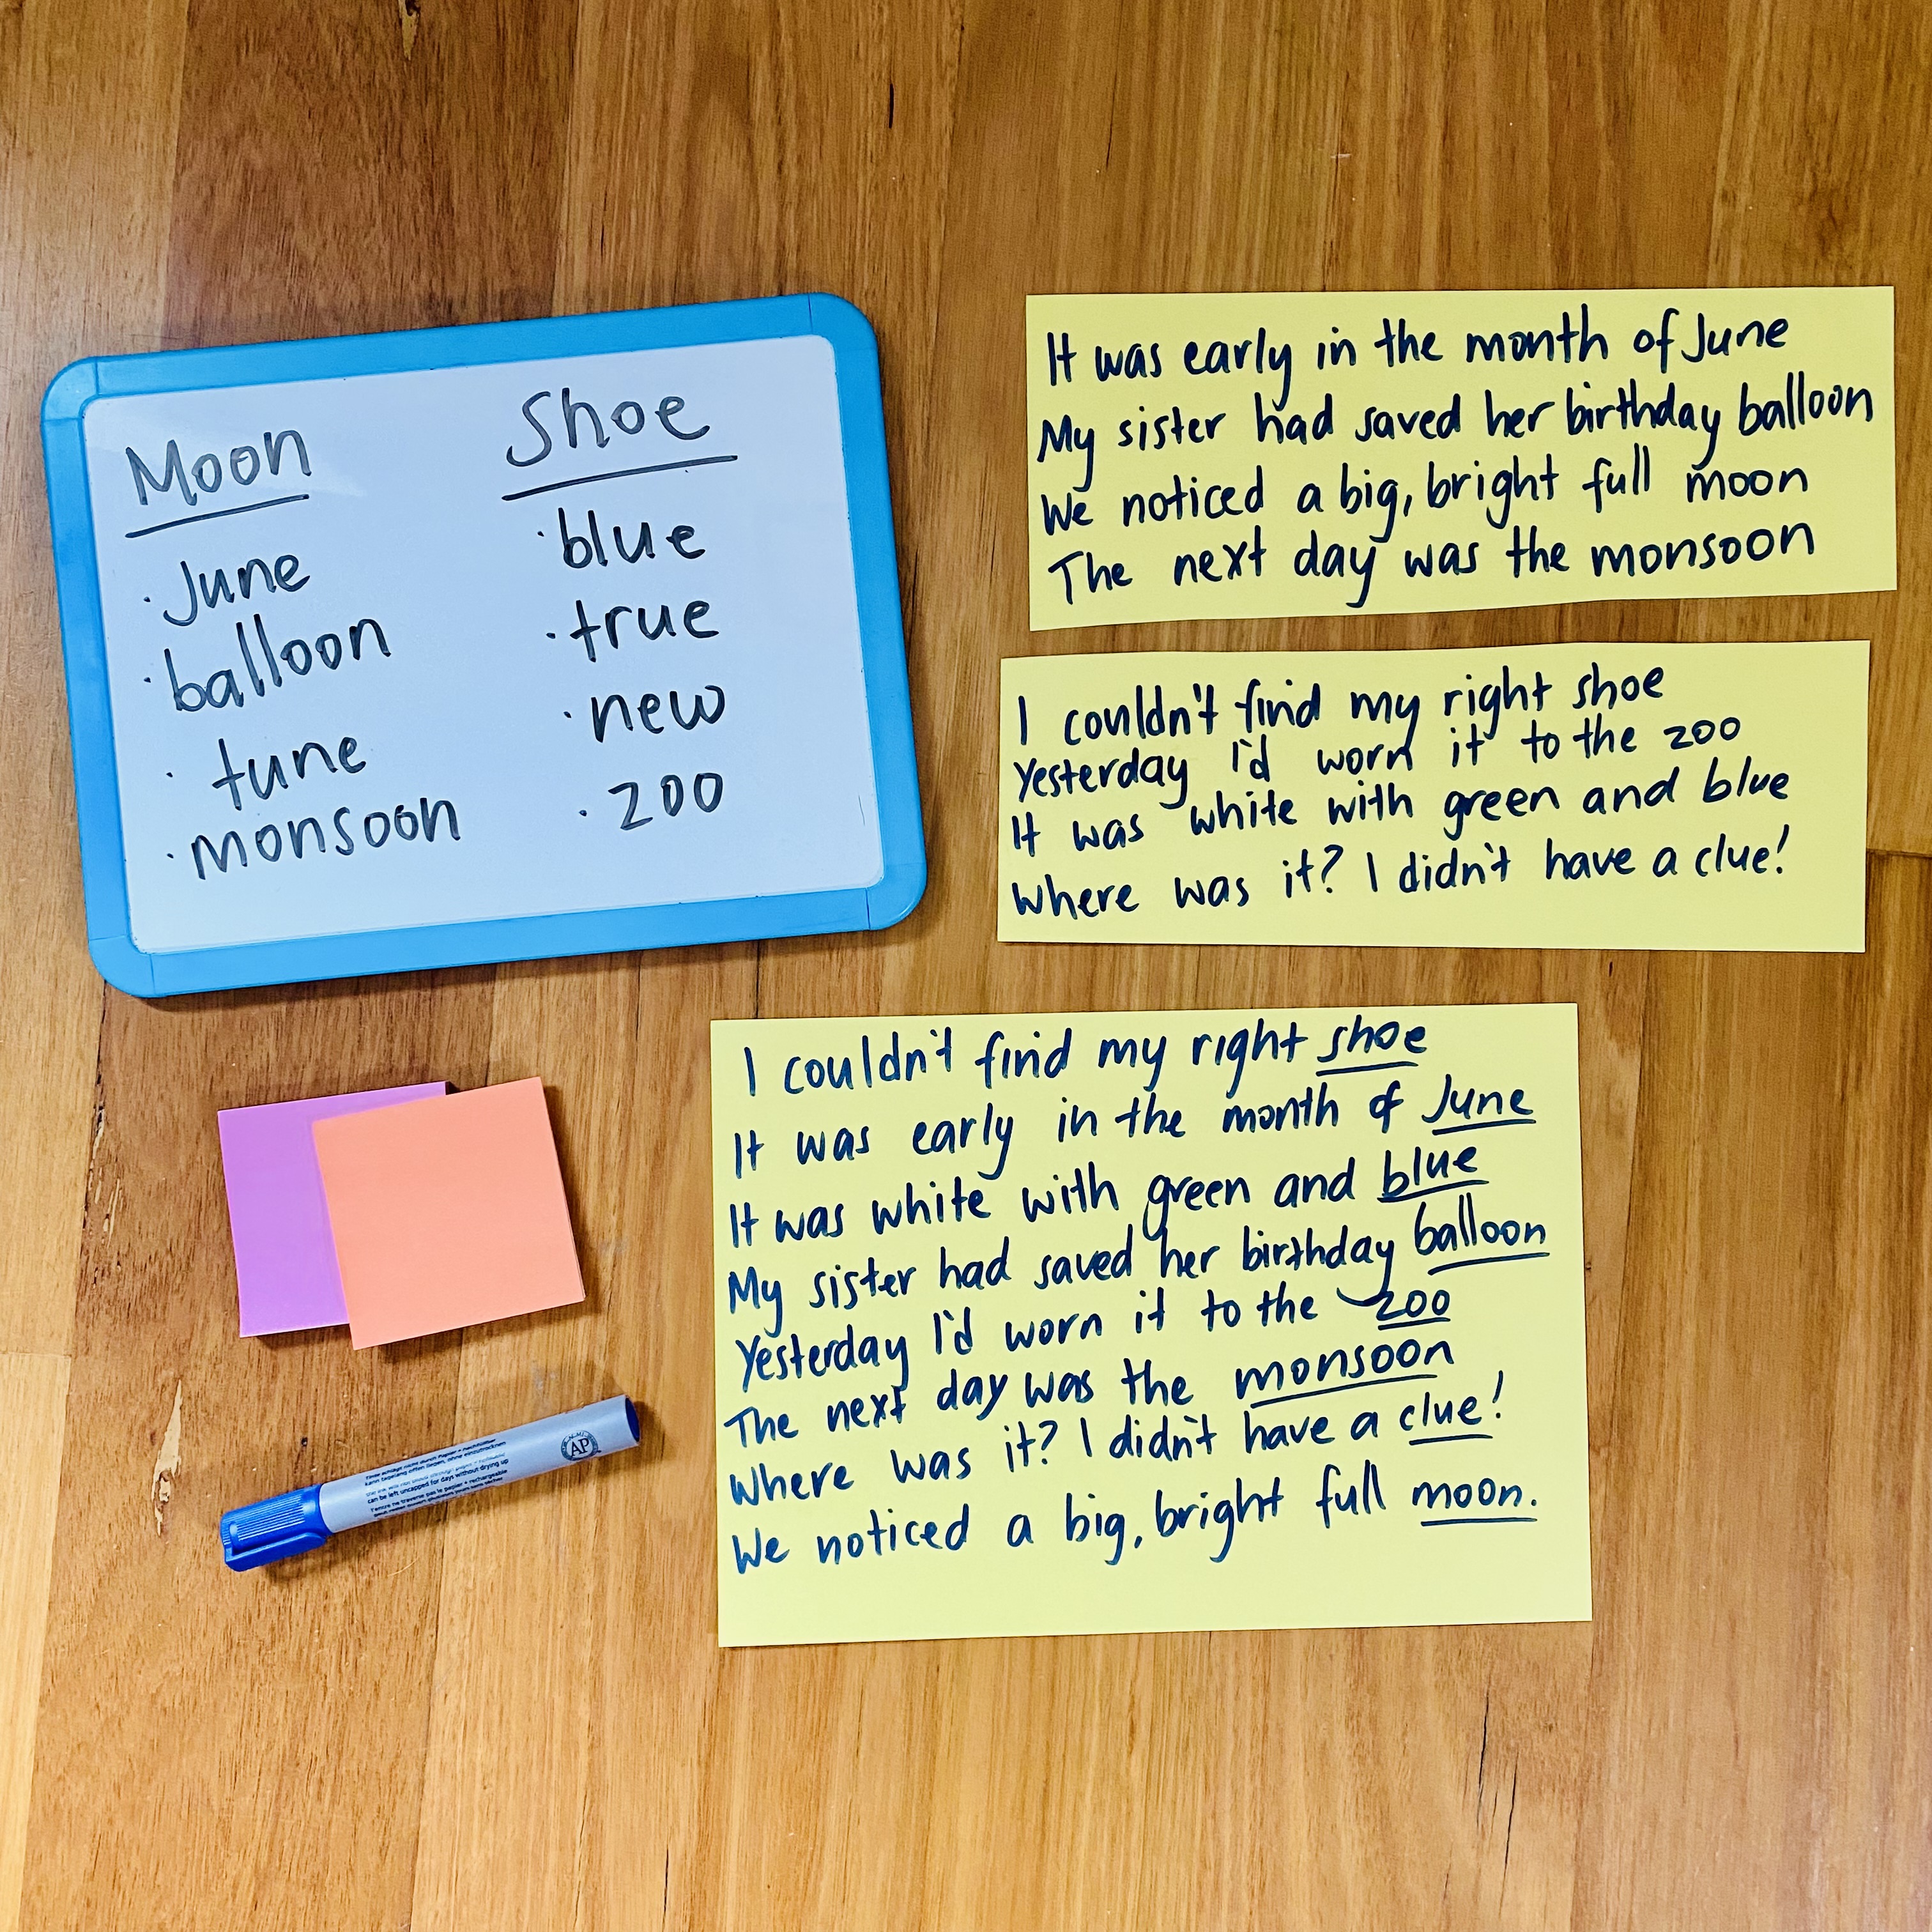 Moon
· June
· balloon
· tune
· monsoon
Shoe
· blue
· true
· new
· zoo
It was early in the month of June
My sister had saved her birthday balloon
We noticed a big, bright full moon
The next day was the monsoon
I couldn't find my right shoe
Yesterday I'd worn it to the zoo
It was white with green and blue
Where was it? I didn't have a clue!
I couldn't find my right shoe
It was early in the month of June
It was white with green and blue
My sister had saved her birthday balloon
Yesterday I'd worn it to the zoo
The next day was the monsoon
Where was it? I didn't have a clue!
We noticed a big, bright full moon.
can be left uncapped for days without drying up
AP